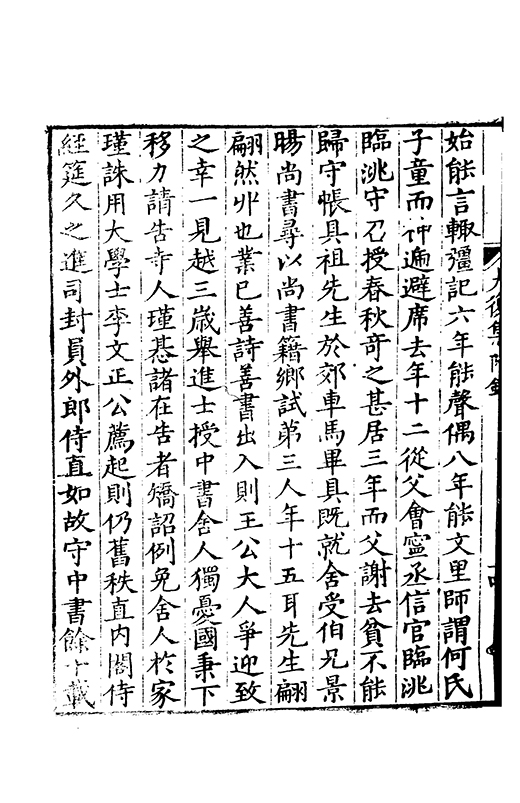 始能言輙彊記六年能聲偶八年能文里師謂何氏
子童而神遍避席去年十二從父會寧丞信官臨洮
臨洮守召授春秋奇之甚居三年而父謝去貧不能
歸守帳具祖先生於郊車馬畢具既就舍受伯兄景
暘尚書尋以尚書籍鄉試第三人年十五耳先生翩
翩然丱也業已善詩善書出入則王公大人爭迎致
之幸一見越三歲舉進士授中書舍人獨憂國秉下
移力請告寺人瑾惎諸在告者矯詔例免舍人於家
瑾誅用大學士李文正公薦起則仍舊秩直內閣侍
經筵久之進司封員外郎侍直如故守中書餘十載
大復集附錄